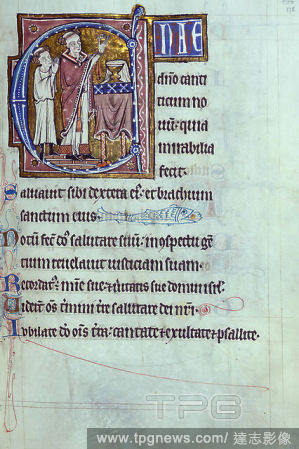 C NTATE
dño canti
ticum no
uū: quia
mirabilia
fecit.
Saluauit sibi dextera ei9: et brachium
sanctum eius.
Notū fec̄ dō salutare suū: in 9spectu gē
tium reuelauit iusticiam suam.
Recordat9 mīe sue: & ūitatis sue domui isrl̄.
om̄s t̄mini t̄re salutare dei nr̄i.
Iubilate dō om̄s t̄ra: cantate & exultate & psallite.
TPG
www.tpgnews.com/ 達志影像